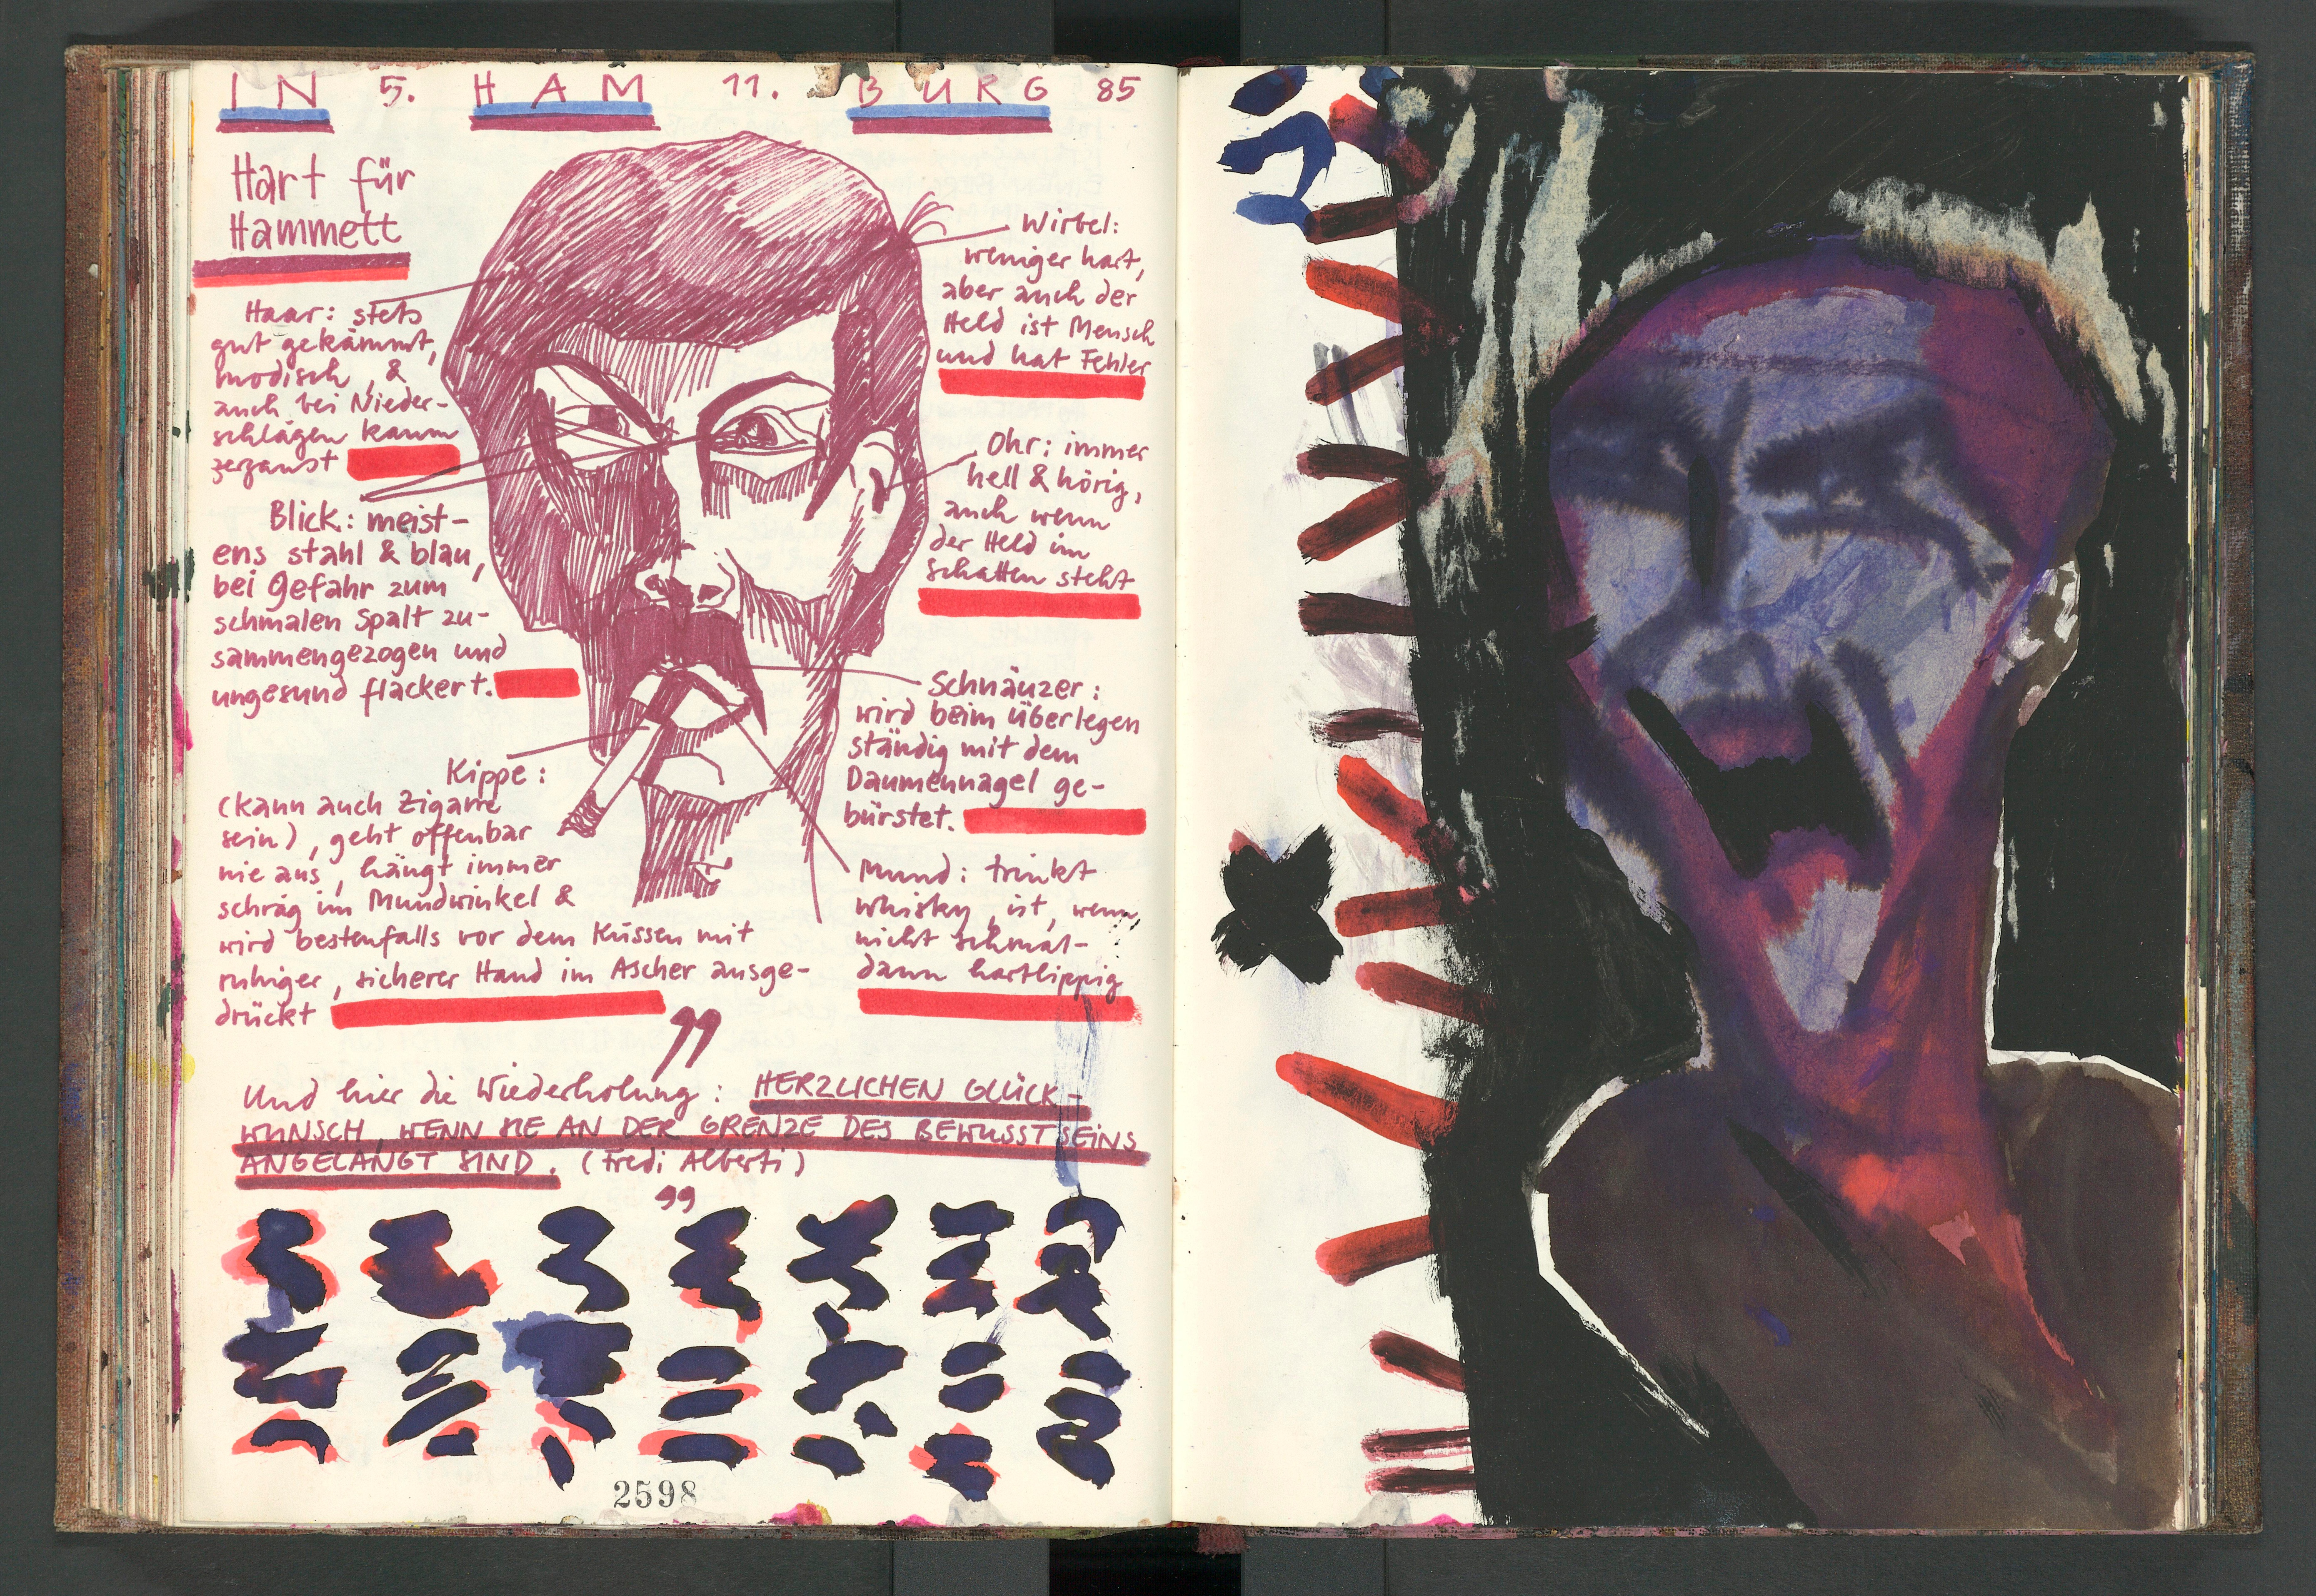 IN 5. HAM 11. BURG 85
Hart für
Hammett
Haar: stets
gut gekämmt,
modisch, &
auch bei Nieder-
schlägen kaum
zerzaust
Blick: meist-
ens stahl & blau,
bei Gefahr zum
schmalen Spalt zu-
sammengezogen und
ungesund flackert.
Kippe:
(kann auch Zigarre
sein), geht offenbar
nie aus, hängt immer
schräg im Mundwinkel &
wird bestenfalls vor dem Küssen mit
ruhiger, sicherer Hand im Ascher ausge-
drückt
Wirbel:
weniger hart,
aber auch der
Held ist Mensch
und hat Fehler
Ohr: immer
hell & hörig,
auch wenn
der Held im
Schatten steht
Schnäuzer:
wird beim Überlegen
ständig mit dem
Daumennagel ge-
bürstet.
Mund: trinkt
Whisky, ist, wenn
nicht schmal-
dann hartlippig
"
Und hier die Wiederholung: HERZLICHEN GLÜCK-
WUNSCH, WENN SIE AN DER GRENZE DES BEWUSSTSEINS
ANGELANGT SIND. (Fredi Alberti)
"
2598